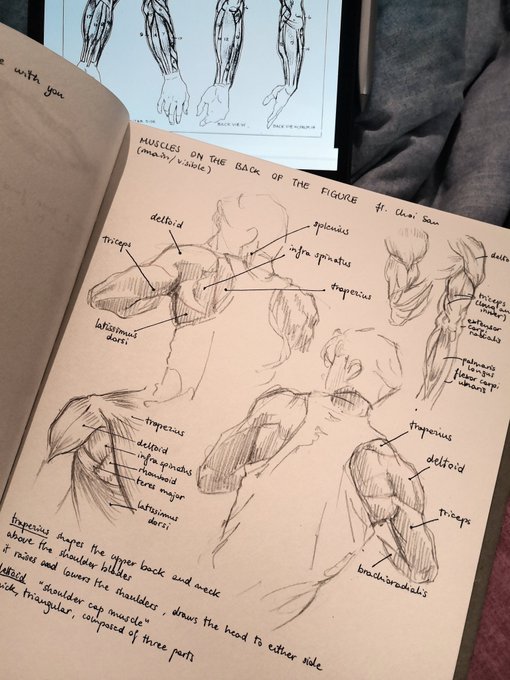 e with you
BACK VIEW
MUSCLES ON THE BACK OF THE FIGURE ft. Choi San
(main/visible)
deltoid
splenius
triceps
infra spinatus
trapezius
latissimus
dorsi
delto
triceps
inner)
extensor
carpi
radialis
palmaris
longus
flexor carpi
ulnaris
trapezius
deltoid
infraspinatus
rhomboid
teres major
latissimus
dorsi
trapezius
deltoid
triceps
brachioradialis
trapezius shapes the upper back and neck
above the shoulder blades
it raises and lowers the shoulders, draws the head to either side
deltoid "shoulder cap muscle"
hick, triangular, composed of three parts